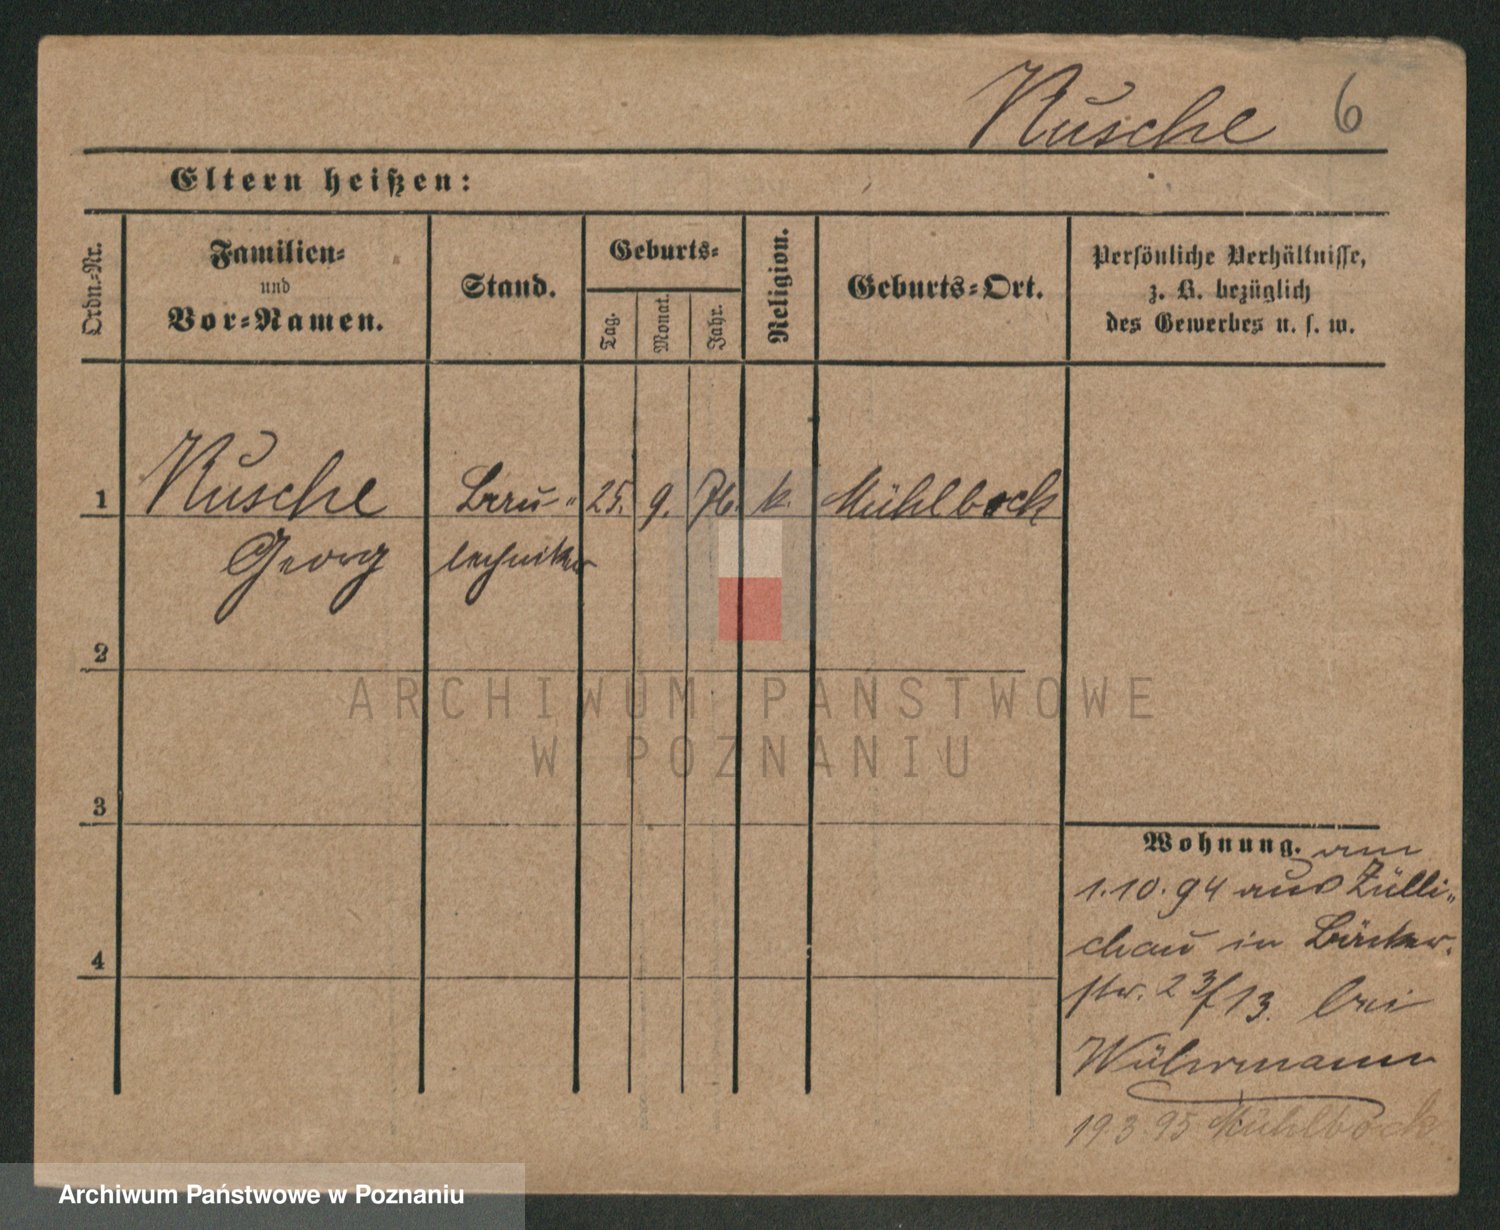 Rusche 6
Eltern heißen:
Ordn.-Nr.
Familien-
und
Vor-Namen.
Stand.
Geburts-
Tag.
Monat.
Jahr.
Religion.
Geburts-Ort.
Persönliche Verhältnisse,
z. B. bezüglich
des Gewerbes u. s. w.
1 Rusche Bau- 25. 9. 76. k. Mühlbock
Georg techniker
2
3
4
Wohnung. am
1.10.94 aus Zülli-
chau in Bäcker-
str. 23/13. bei
Wührmann
19 3 95 Mühlbock
ARCHIWUM PAŃSTWOWE
W POZNANIU
Archiwum Państwowe w Poznaniu